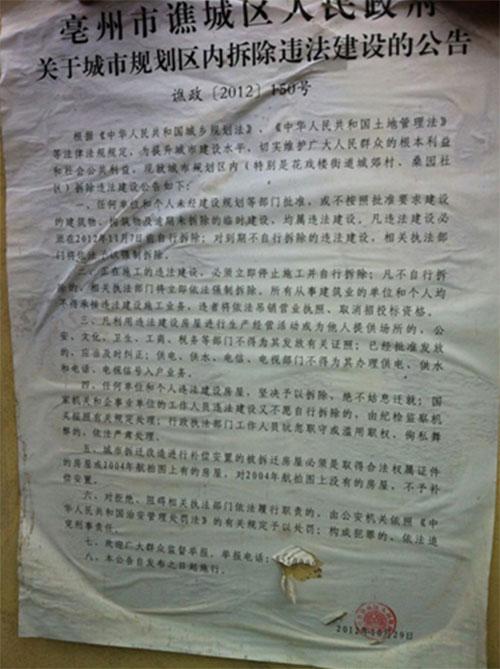 亳州市谯城区人民政府
关于城市规划区内拆除违法建设的公告
谯政〔2012〕150号
根据《中华人民共和国城乡规划法》、《中华人民共和国土地管理法》
等法律法规规定，为提升城市建设水平，切实维护广大人民群众的根本利益
和社会公共利益，现就城市规划区内（特别是花戏楼街道城郊村、桑园社
区）拆除违法建设公告如下：
一、任何单位和个人未经建设规划等部门批准，或不按照批准要求建设
的建筑物、构筑物及逾期未拆除的临时建设，均属违法建设。凡违法建设必
须在2012年11月7日前自行拆除；对到期不自行拆除的违法建设，相关执法部
门将依法予以强制拆除。
二、正在施工的违法建设，必须立即停止施工并自行拆除；凡不自行拆
除的，相关执法部门将立即依法强制拆除。所有从事建筑业的单位和个人均
不得承接违法建设施工业务，违者将依法吊销营业执照、取消招投标资格。
三、凡利用违法建设房屋进行生产经营活动或为他人提供场所的，公
安、文化、卫生、工商、税务等部门不得为其发放有关证照；已经批准发放
的，应当及时纠正；供电、供水、电信、电视部门不得为其办理供电、供水
和电话、电视信号入户业务。
四、任何单位和个人违法建设房屋，坚决予以拆除，绝不姑息迁就；国
家机关和企事业单位的工作人员违法建设又不愿自行拆除的，由纪检监察机
关按照有关规定处理；行政执法部门工作人员玩忽职守或滥用职权、徇私舞
弊的，依法严肃处理。
五、城市拆迁改造进行补偿安置的被拆迁房屋必须是取得合法权属证件
的房屋或2004年航拍图上有的房屋，对2004年航拍图上没有的房屋，不予补
偿安置。
六、对拒绝、阻碍相关执法部门依法履行职责的，由公安机关依照《中
华人民共和国治安管理处罚法》的有关规定予以处罚；构成犯罪的，依法追
究刑事责任。
七、欢迎广大群众监督举报，举报电话：
八、本公告自发布之日起施行。
2012年10月29日